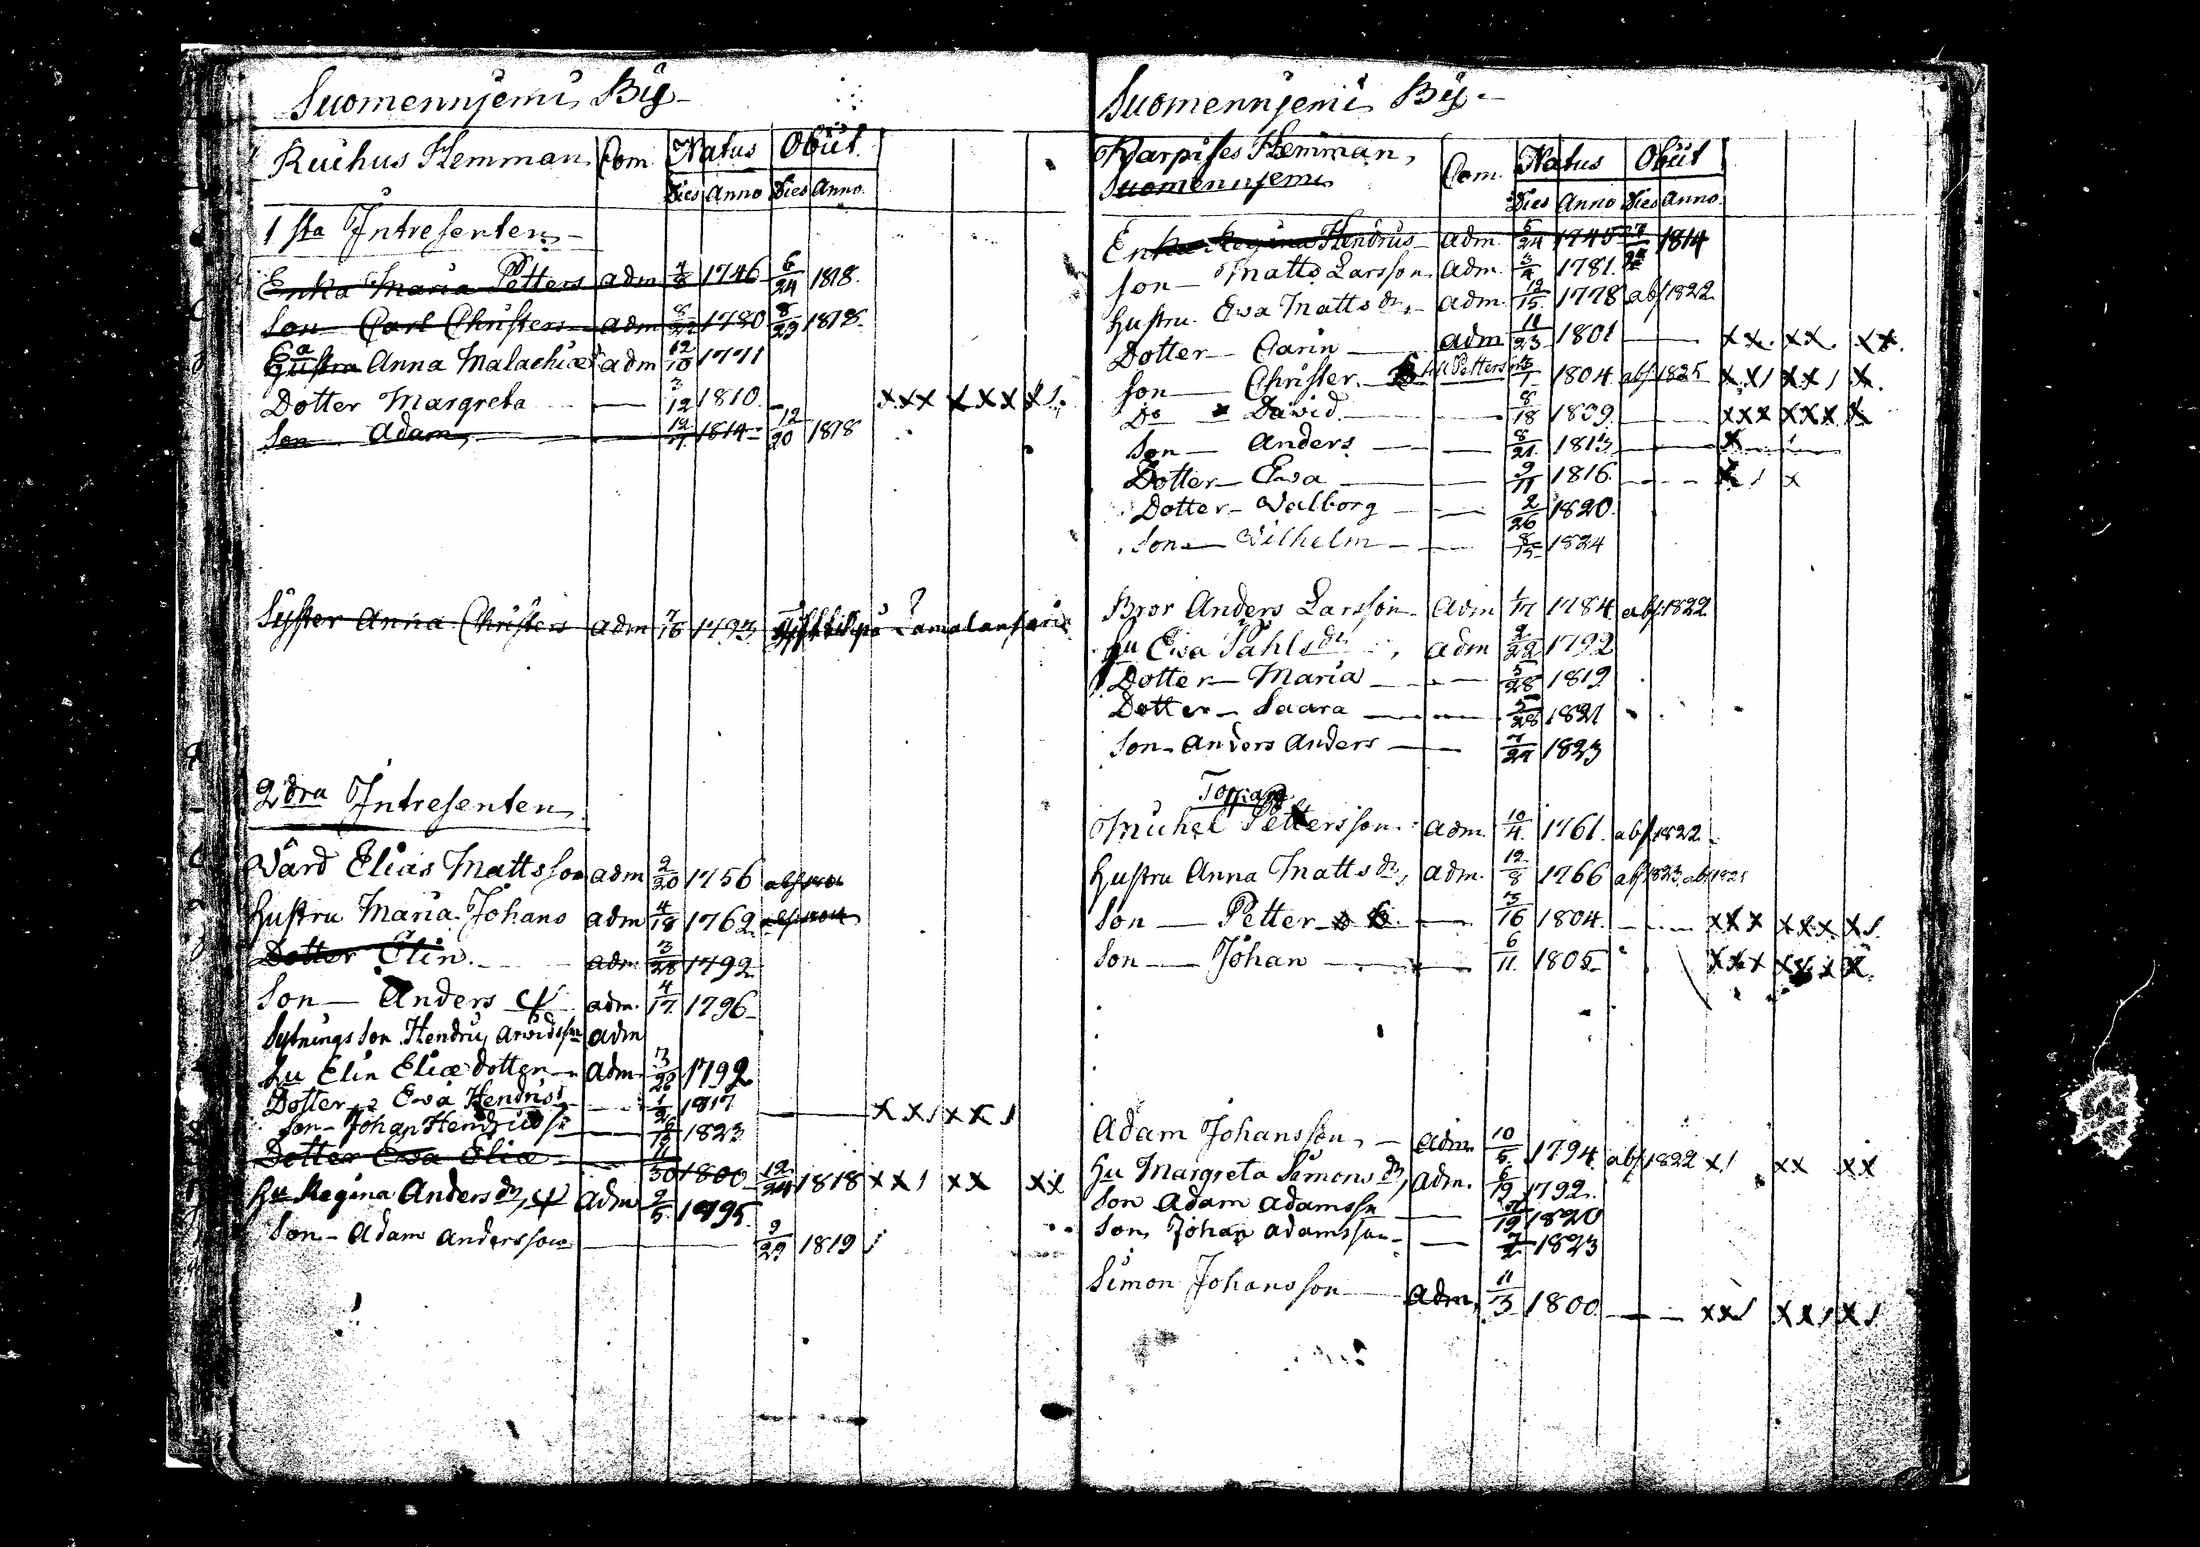 Suomennjemi By
Ruihus Hemman Com Natus Obiit
Dies Anno Dies Anno
1 sta Intresenten
Enka Maria Petters adm 4/8 1746 6/24 1818
Son Carl Christers adm 8/22 1780 8/29 1818
Ea Hustru Anna Malachiæ adm 12/10 1771
Dotter Margreta 3/12 1810 xxx xxx x1
Son Adam 12/7 1814 12/20 1818
Syster Anna Christers adm 7/16 1793
2 dra Intresenten
Värd Elias Mattsson adm 2/20 1756
Hustru Maria Johans adm 4/18 1762
Dotter Elin adm 3/28 1792
Son Anders adm 4/17 1796
Sytnings Son Hendric Arvidsson adm
Hu Elin Eliæ dotter adm 3/28 1792
Dotter Eva Hendrics 1/2 1817 xx1 xx1
Son Johan Hendricss 1823
Dotter Eva Eliæ 11/30 1800 12/24 1818 xx1 xx xx
Hu Regina Anders dr adm 2/5 1795
Son Adam Andersson 9/29 1819
Suomennjemi By
Karpises Hemman, Com. Natus Obiit
Suomennjemi
Dies Anno Dies Anno
Enka Regina Hendrics adm. 5/24 1745 1814
Son Matts Larsson adm. 3/4 1781
Hustru Eva Matts dr adm. 12/15 1778 abs 1822
Dotter Carin adm 11/23 1801 xx xx xx
Son Christer 1804 abs 1825 xx1 xx1 x
Do David 8/18 1809 xxx xxx x
Son Anders 8/21 1813 x
Dotter Eva 9/11 1816 x1 x
Dotter Valborg 2/26 1820
Son Wilhelm 8/15 1824
Bror Anders Larsson Adm 1784 abs 1822
Hu Eva Pahls dr adm 2/22 1792
Dotter Maria 5/28 1819
Dotter Saara 5/28 1821
Son Anders Anders 7/21 1823
Torpare
Michel Pettersson adm. 10/4 1761 abs 1822
Hustru Anna Matts dr, adm. 12/8 1766 abs 1823
Son Petter 3/16 1804 xxx xxx x1
Son Johan 6/11 1805 xxx xx1 x
Adam Johansson, adm 10/5 1794 abs 1822 x1 xx xx
Hu Margreta Simons dr, adm. 6/19 1792
Son Adam Adamsson 1820
Son, Johan Adamsson 7/2 1823
Simon Johansson adm, 11/3 1800 xx1 xx1 x1